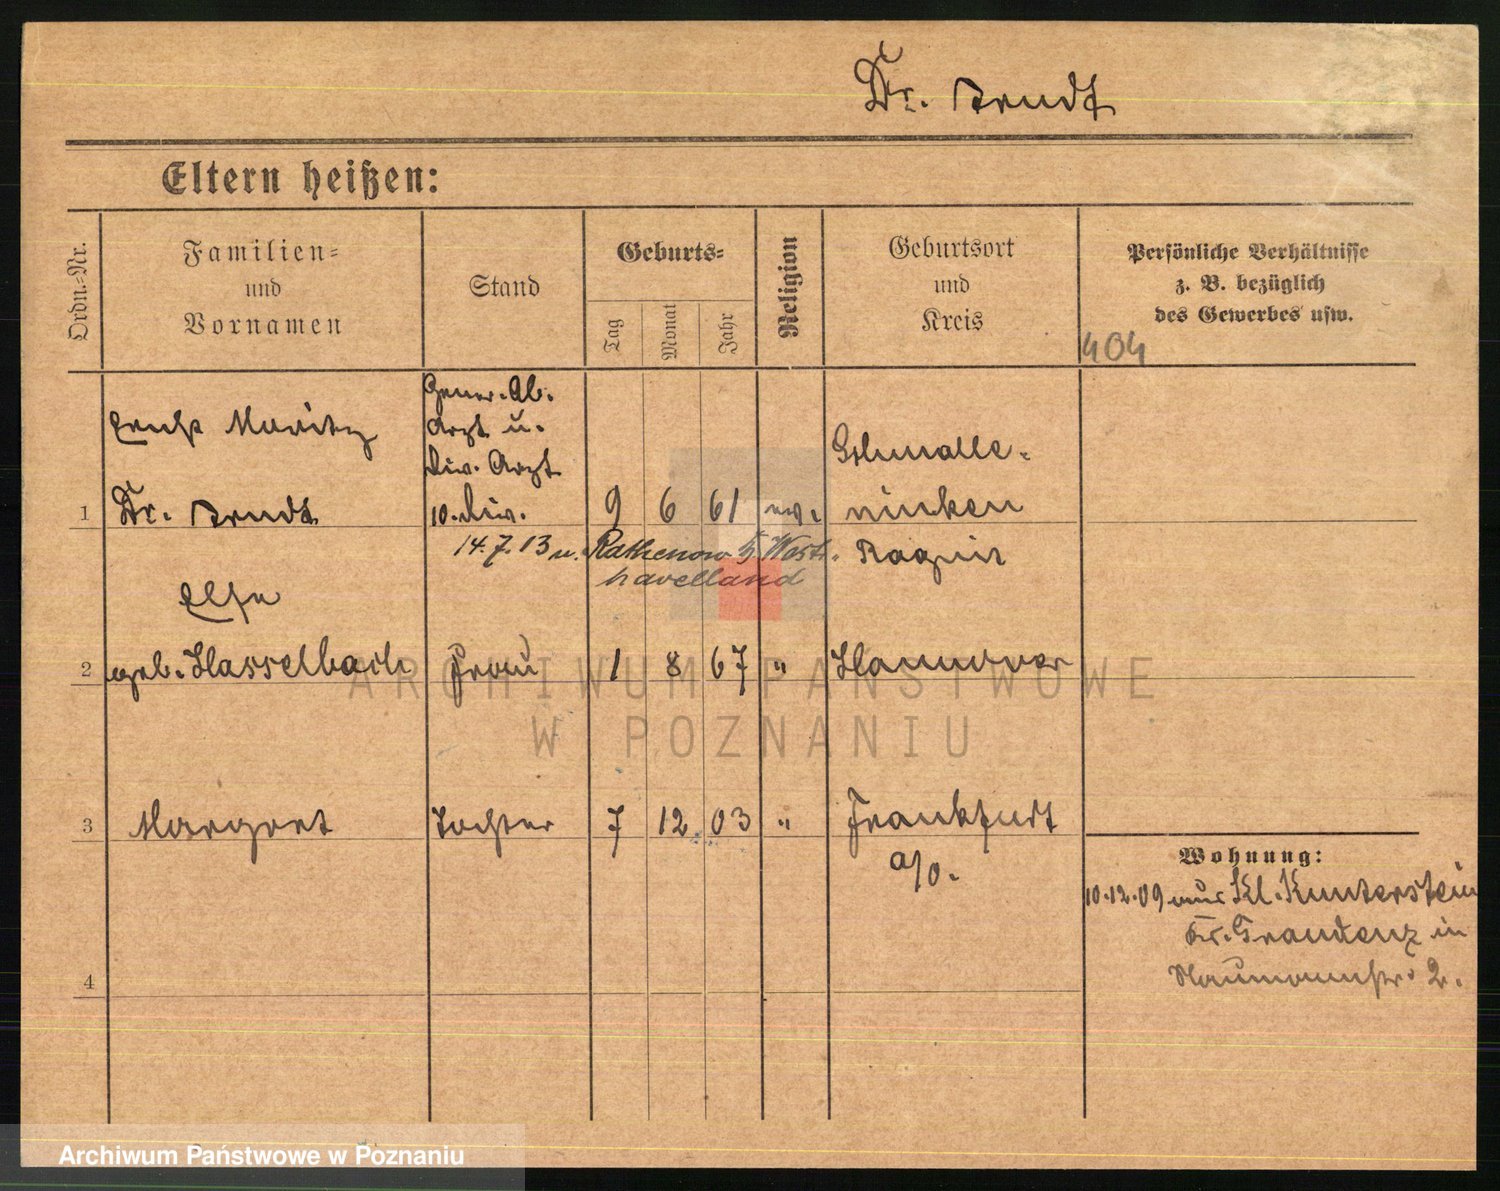 Dr. Arndt
Eltern heißen:
Ordn.-Nr.
Familien-
und
Vornamen
Stand
Geburts-
Tag
Monat
Jahr
Religion
Geburtsort
und
Kreis
Persönliche Verhältnisse
z. B. bezüglich
des Gewerbes usw.
404
1
Ernst Moritz
Dr. Arndt
Gener. Ob.
Arzt u.
Div. Arzt
10. Div.
9 6 61 ev.
Schmalle-
ninken
Ragnit
14.7.13 n. Rathenow Westhavelland
2
Else
geb. Hasselbach
Frau
1 8 67 "
Hannover
3
Margot
Tochter
7 12 03 "
Frankfurt
a/O.
4
Wohnung:
10.12.09 aus Kl. Kunterstein
Kr. Graudenz in
Naumannstr. 2.
ARCHIWUM PAŃSTWOWE
W POZNANIU
Archiwum Państwowe w Poznaniu